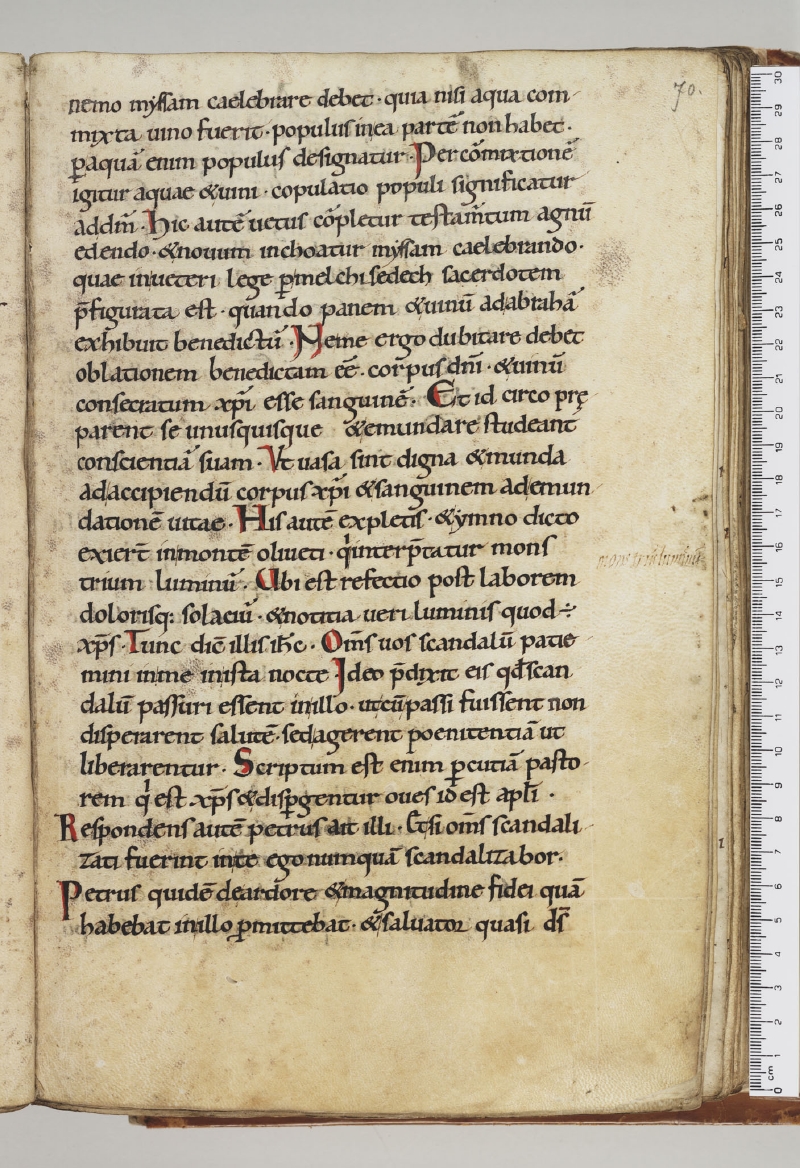 70.
nemo myssam caelebrare debet · quia nisi aqua com-
mixta uino fuerit · populus inea partē non habet ·
p̲aquā enim populus designatur · Per cōmixtionē
igitur aquae &uini · copulatio populi significatur
addm̄ · Hic autē uetus cōpletur testam̄tum agnū
edendo · &nouum inchoatur myssam caelebrando ·
quae inueteri lege p̲melchisedech sacerdotem
p̄figurata est · quando panem &uinū adabrahā
exhibuit benedictū · Neme ergo dubitare debet
oblationem benedictam eē · corpus dn̄i · &uinū
consecratum xp̄i esse sanguinē · Et id circo prę
parent se unusquisque &emundare studeant
conscientiā suam · Vt uasa sint digna &munda
adaccipiendū corpus xp̄i &sanguinem ademun-
dationē uitae · His autē expletis · &ymno dicto
exiert̄ inmontē oliueti · q̄interp̄tatur mons
trium luminū · Vbi est refectio post laborem
dolorisq: solaciū · &notitia ueri luminis quod ÷
xp̄s · Tunc dic̄ illis ih̄c · Om̄s uos scandalū patie-
mini inme inista nocte Ideo p̄dixit eis qđ scan
dalū passuri essent inillo · utcū passi fuissent non
disperarent salutē · sed agerent poenitentiā ut
liberarentur · Scriptum est enim p̲cutiā pasto-
rem q̄ est xp̄s &disp̲gentur oues id est apl̄i ·
Respondens autē petrus ait illi · Etsi om̄s scandali-
zati fuerint inte ego numquā scandalizabor.
Petrus quidē deardore &magnitudine fidei quā
habebat inillo p̲mittebat · &saluator quasi d̄s